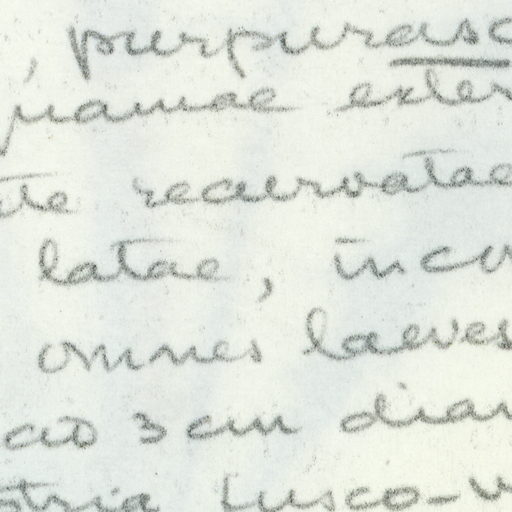 , purpurasc
uamae exter
te recurvatae
latae, incu
omnes laeves
3 cm diam
stria fusco-v